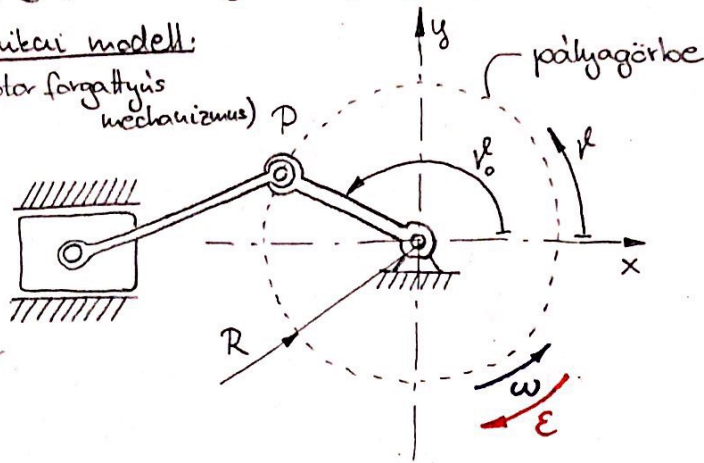 nikai modell:
otor forgattyús
mechanizmus)
P
y
pályagörbe
φ₀
φ
x
R
ω
ε